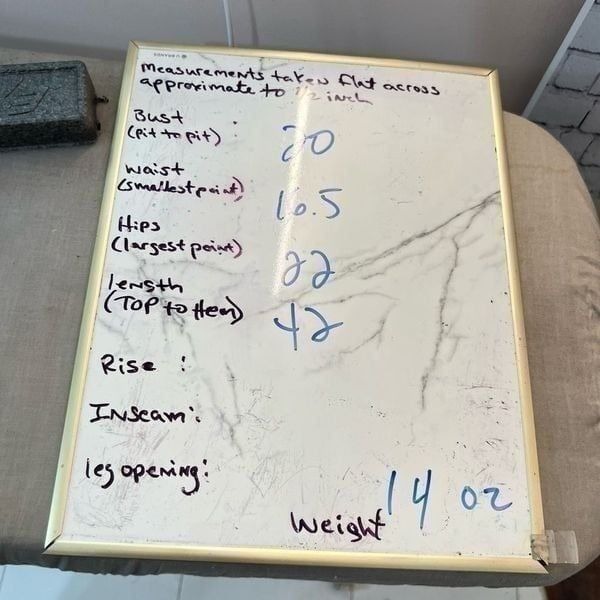 Measurements taken flat across
approximate to 1/2 inch
Bust
(pit to pit) :
20
waist
(smallest point)
16.5
Hips
(largest point)
22
length
(TOP to Hem)
42
Rise :
INseam:
leg opening:
Weight 14 oz